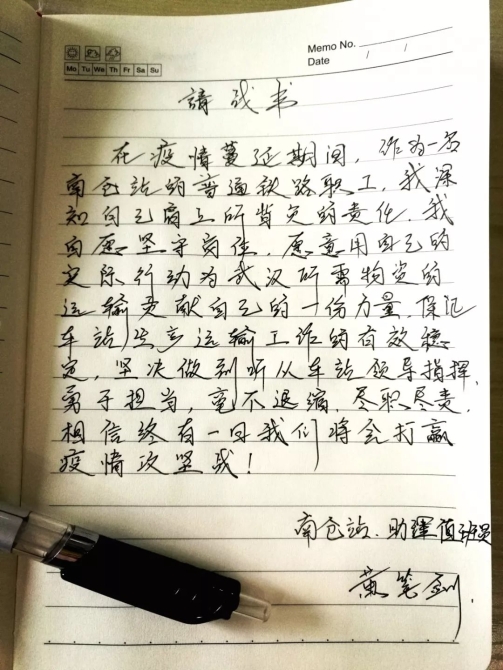 Memo No.
Mo Tu We Th Fr Sa Su
Date / /
請战书
在疫情蔓延期间，作为一名
南仓站的普通铁路职工，我深
知自己肩上所背负的责任，我
自愿坚守岗位，愿意用自己的
实际行动为武汉所需物资的
运输贡献自己的一份力量，保证
车站安全运输工作的有效稳
定，坚决做到听从车站领导指挥，
勇于担当，毫不退缩，尽职尽责，
相信终有一日我们将会打赢
疫情攻坚战！
南仓站、助理值班员
黄